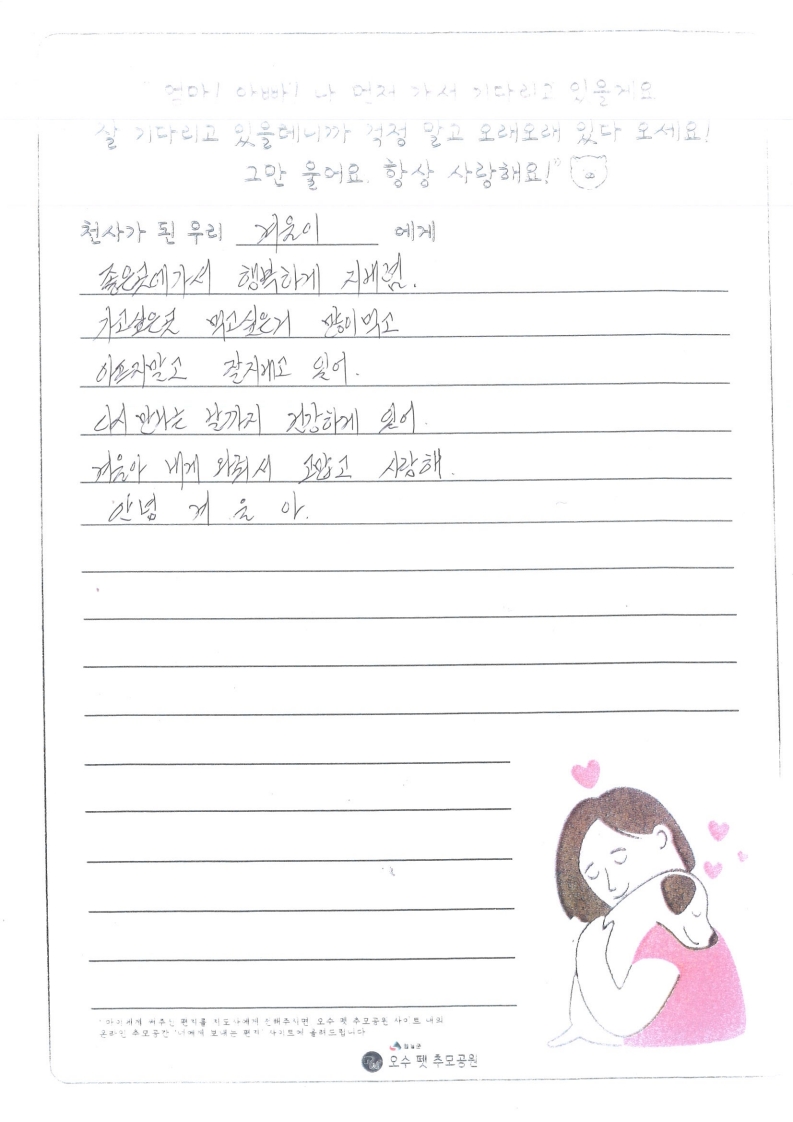 "엄마! 아빠! 나 먼저 가서 기다리고 있을게요
잘 기다리고 있을테니까 걱정 말고 오래오래 있다 오세요!
그만 울어요. 항상 사랑해요!"
천사가 된 우리 겨울이 에게
좋은곳에가서 행복하게 지내렴.
가고싶은곳 먹고싶은거 많이먹고
아프지말고 잘지내고 있어.
다시 만나는 날까지 건강하게 있어.
겨울아 내게 와줘서 고맙고 사랑해.
안녕 겨 울 아.
아이에게 써주신 편지를 지도사에게 전해주시면 오수 펫 추모공원 사이트 내의
온라인 추모공간 '너에게 보내는 편지' 사이트에 올려드립니다
임실군
오수 펫 추모공원